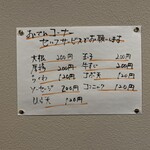 おでんコーナー
セルフサービスでお願いします
大根 200円 玉子 200円
厚揚 200円 牛すじ 200円
ちくわ 120円 ごぼ天 120円
ソーセージ 200円 コンニャク 120円
ひら天 120円